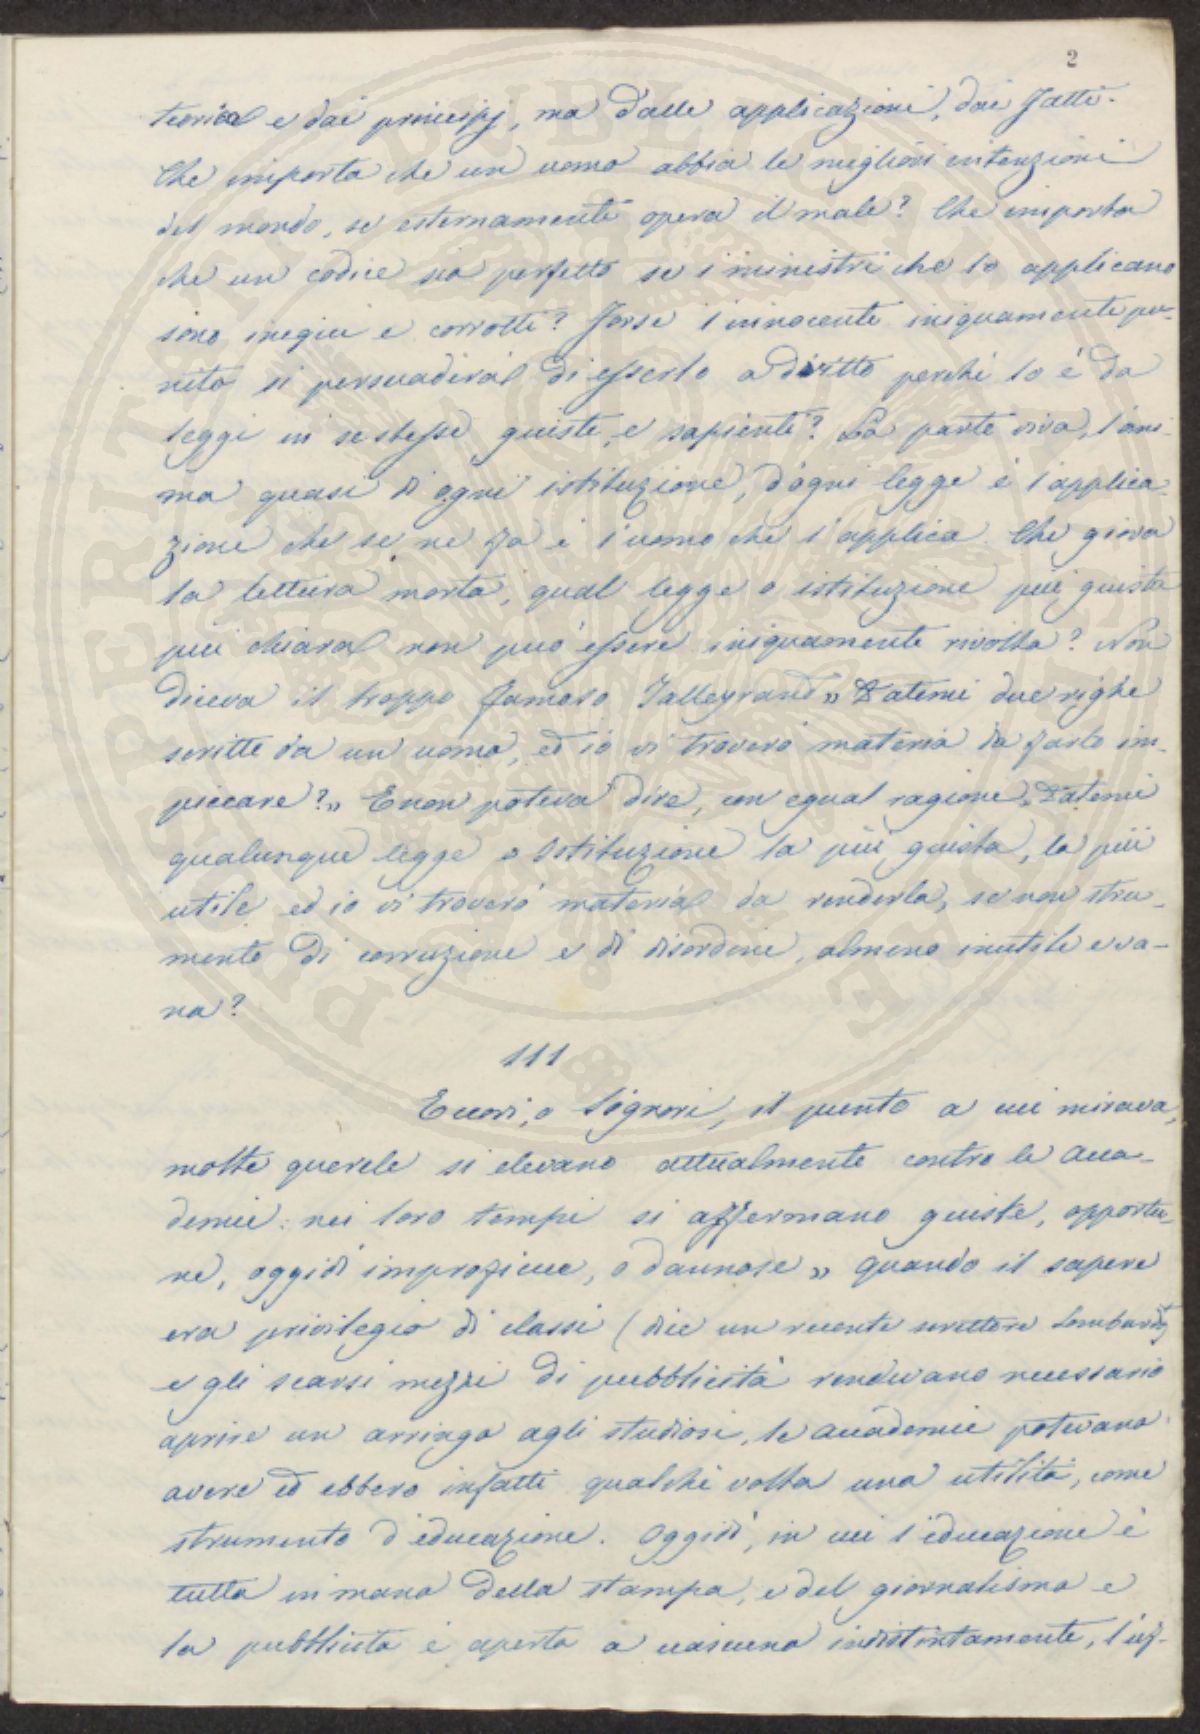 2
teorical e dai principj, ma dalle applicazioni, dai fatti.
Che importa che un uomo abbia le migliori intenzioni
del mondo, se esternamente opera il male? Che importa
che un codice sia perfetto se i ministri che lo applicano
sono inegui e corrotti? Forse l'innocente iniquamente pu-
nito si persuaderà di esserlo a diritto perchè lo è da
leggi in se stesse guiste, e sapienti? La parte viva, l'ani-
ma quasi di ogni istituzione, d'ogni legge è l'applica-
zione che se ne fa è l'uomo che l'applica. Che giova
la lettera morta, qual legge o istituzione più guista
più chiara non può essere iniquamente rivolta? Non
diceva il troppo famoso Talleyrand » Datemi due righe
scritte da un uomo, ed io vi troverò materia da farlo im-
piccare?» E non poteva dire, con egual ragione » Datemi
qualunque legge o Istituzione la più guista, la più
utile ed io vi troverò materia da renderla, se non stru-
mento di corruzione e di disordine, almeno inutile e va-
na?
111
Eccovi, o Signori, il punto a cui mirava,
molte querele si elevano attualmente contro le Acca-
demie: nei loro tempi si affermano guiste, opportu-
ne, oggidì improficue, o dannose » quando il sapere
era privilegio di classi (dice un recente scrittore Lombardo)
e gli scarsi mezzi di pubblicità rendevano necessario
aprire un arringo agli studiosi, le accademie potevano
avere ed ebbero infatti qualche volta una utilità, come
strumento d'educazione. Oggidì, in cui l'educazione è
tutta in mano della stampa, e del giornalismo e
la pubblicità è aperta a ciascuno indistintamente, l'uf-